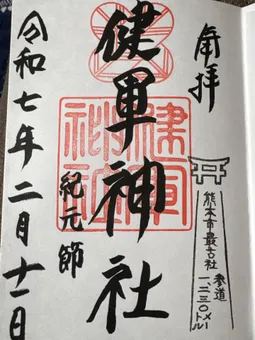 奉拝
熊本市最古社
参道
一二三〇メートル
健軍神社
紀元節
令和七年二月十一日